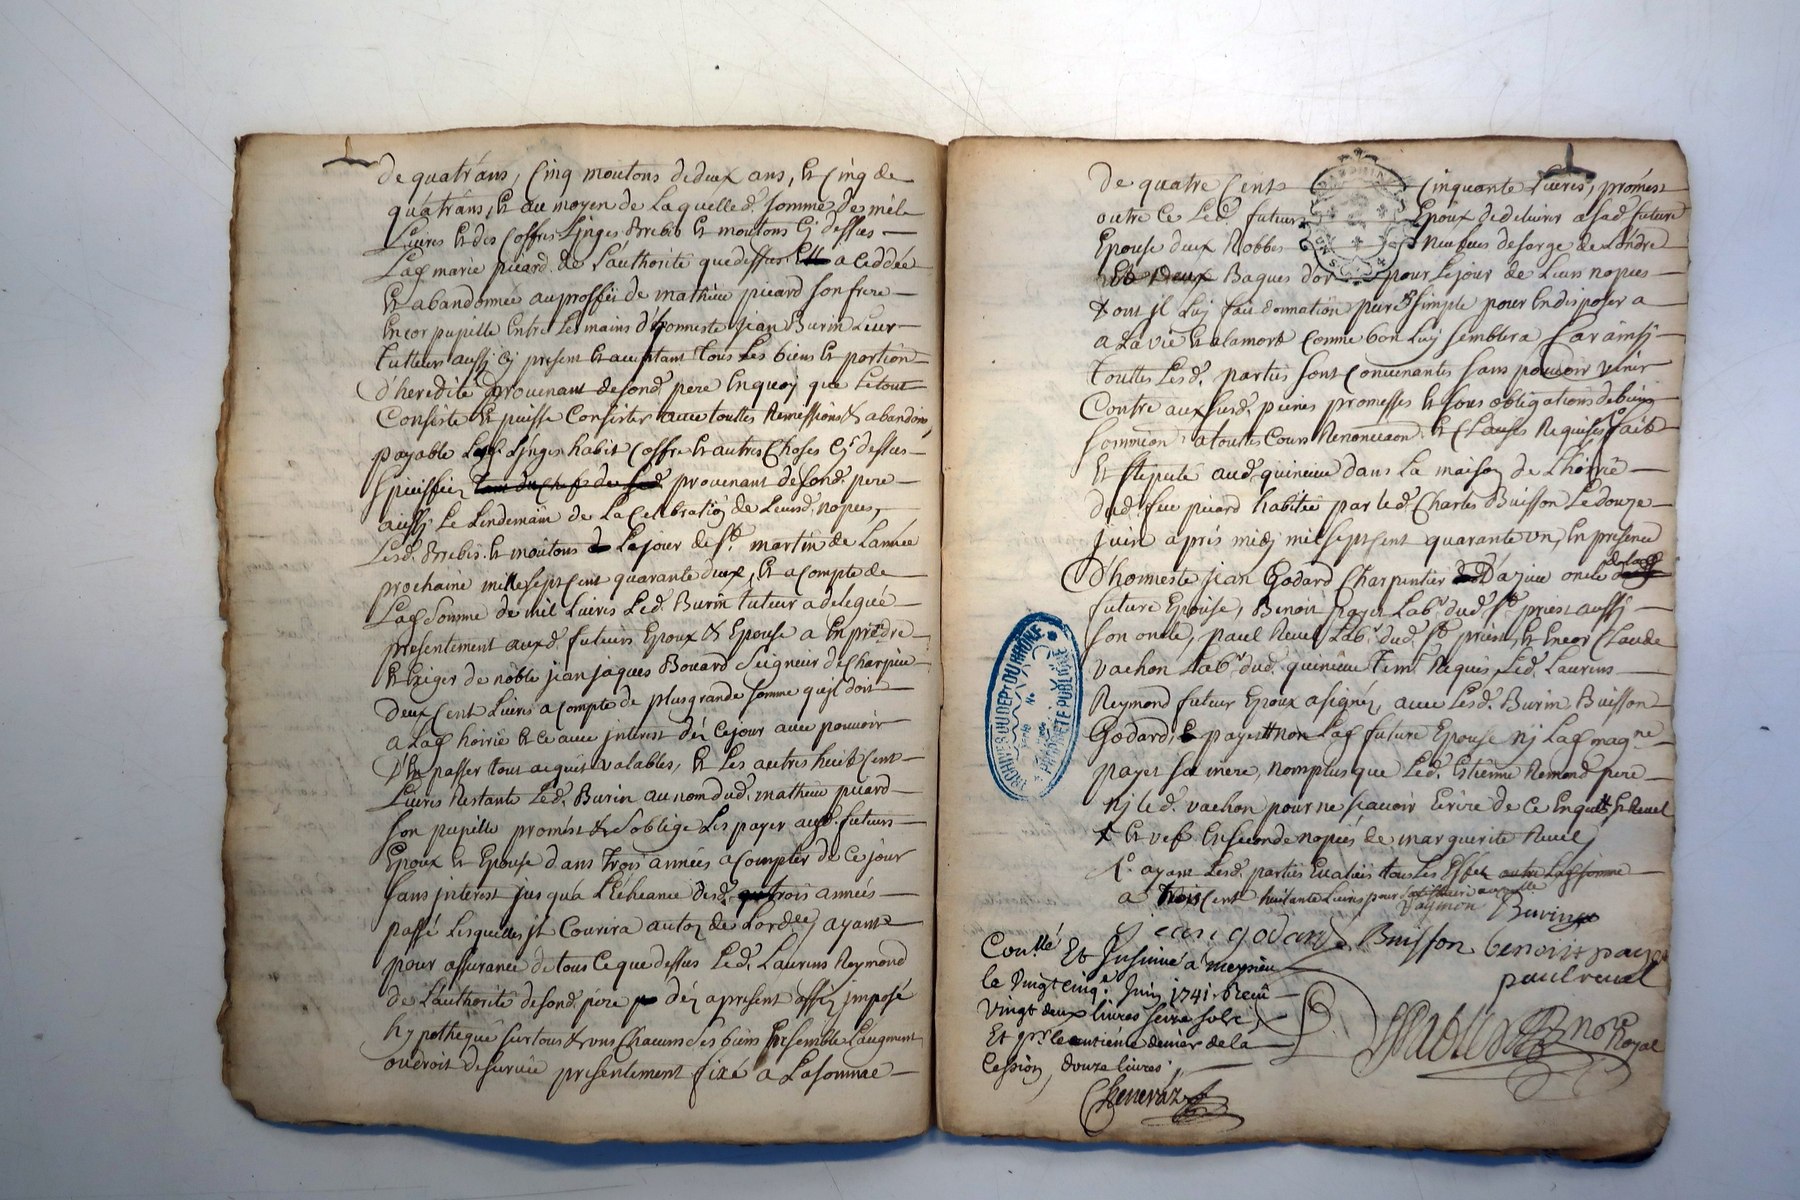 de quatrans, Cinq moutons de deux ans, et Cinq de
quatrans, et au moyen de Laquelle d. Somme de mil
Livres et des Coffres Linges Brebis et moutons Cy dessus
Lad marie picard de L'authorité que dessus a ceddée
et abandonnée au proffit de mathieu picard son frere
Encor pupille Entre Les mains d'honneste jean Burin Leur
tutteur aussi cy present et acceptant tous Les biens et portion
d'heredité provenant de sond. pere En quoy que Le tout
Consiste et puisse Consister avec touttes Remissions & abandons
payable Linges habit Coffre et autres Choses Cy dessus
Speciffiez provenant de sond. pere
aussy Le Lendemain de La Celebration de Leursd. nopces,
Lesd. Brebis et moutons Le jour de St. martin de L'année
prochaine mille sept Cent quarante deux, et a Compte de
Lad Somme de mil Livres Led. Burin tuteur a delegué
presentement auxd. futeurs Epoux & Epouse a En prendre
et Exiger de noble jean jaques Bouard Seigneur de Charpieu
deux Cent Livres a Compte de plus grande Somme qu'il doit
a Lad hoirie et ce avec jnterest dez Ce jour avec pouvoir
d'En passer tout acquit valables, et Les autres huit Cent
Livres Restante Led. Burin au nom dud. mathieu picard
Son pupille promest & s'oblige Les payer auxd. futeurs
Epoux et Epouse dans trois années a Compter de Ce jour
Sans jnterest jusqu'a L'Echeance desd. trois années
passé Lesquelles jl Courira au ton de Lord.ce ayant
pour assurance de tous Ce que dessus Led. Laurens Reymond
de L'authorité de sond. pere dez apresent affecté jmposé
hypotheque Sur tous & uns Chacuns ses biens Ensemble L'augment
ou droit de Survie presentement fixé a La Somme
de quatre Cents Cinquante Livres, promest
outre Ce Led. futeur Epoux de delivrer a sad future
Epouse deux Robbes neufves de sarge de Londre
deux Bagues d'or pour Le jour de Leurs nopces
dont jl Luy fait donnation pure & simple pour En disposer a
a La vie et a La mort Comme bon Luy Semblera Car ainsy
touttes Lesd. parties Sont Convenantes Sans pouvoir venir
Contre aux Susd. peines promesses et sous obligations de biens
Sommion a toutes Cours Renonciaon et Clauses Requises fait
et Stipulé aud. quincieu dans La maison de L'hoirie
dud. feu picard habitée par led. Charles Buisson Le douze
juin aprés midy mil sept Cent quarante un, En presence
d'honneste jean Godard Charpentier D'azieu oncle de Lad
future Epouse, Benoit payet Labr. dud. St. priest aussy
Son oncle, paul Revel Labr. dud. St. priest et Encor Claude
vachon Labr. dud. quincieu temt. Requis, Led. Laurens
Reymond futeur Epoux a signé, avec Lesd. Burin Buisson
Godard, payet non Lad future Epouse ny Lad magne.
payet Sa mere, nomplus que Led. Estienne Remond pere
ny led. vachon pour ne scavoir Ecrire de Ce Enquis
et vef. En seconde nopces de marguerite Revel
ayant Lesd. parties Evalués tous Les Effets
a trois Cent huitante Livres pour
Raymon Burin
Jean godard Buisson benoist payet
paul revel
no.re Royal
Con.llé Et Insinué a meyzieu
le vingt cinq.e Juin 1741. Receu
vingt deux livres seize solz,
Et pr. le centiéme denier de la
Cession, douze livres.
Cheneváz
ARCHIVES DU DEPt. DU RHÔNE
PROPRIÉTÉ PUBLIQUE